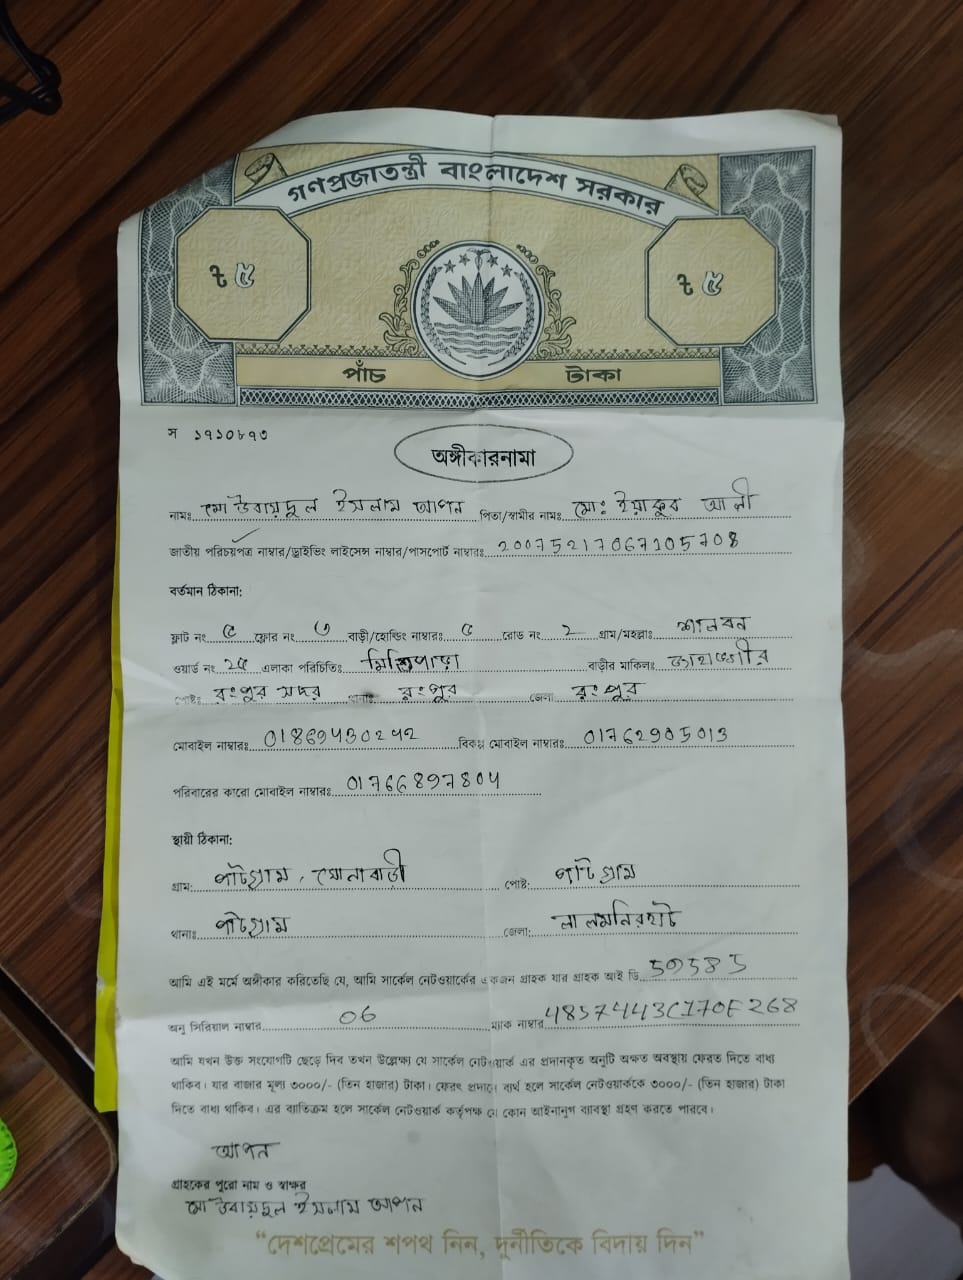 গণপ্রজাতন্ত্রী বাংলাদেশ সরকার
৳ ৫ ৳ ৫
পাঁচ টাকা
স ১৭১০৮৭৩
অঙ্গীকারনামা
নামঃ মো উবায়দুল ইসলাম আপন পিতা/স্বামীর নামঃ মোঃ ইয়াকুব আলী
জাতীয় পরিচয়পত্র নাম্বার/ড্রাইভিং লাইসেন্স নাম্বার/পাসপোর্ট নাম্বারঃ 20075217067105708
বর্তমান ঠিকানা:
ফ্লাট নং ৫ ফ্লোর নং ৩ বাড়ী/হোল্ডিং নাম্বারঃ ৫ রোড নং ২ গ্রাম/মহল্লাঃ শালবন
ওয়ার্ড নং ২৫ এলাকা পরিচিতিঃ মিস্ত্রিপাড়া বাড়ীর মালিকঃ জাহাঙ্গীর
পোষ্টঃ রংপুর সদর থানাঃ রংপুর জেলা রংপুর
মোবাইল নাম্বারঃ 01869430242 বিকল্প মোবাইল নাম্বারঃ 01762905013
পরিবারের কারো মোবাইল নাম্বারঃ 01766897804
স্থায়ী ঠিকানা:
গ্রাম: পাটগ্রাম, সোনাবাড়ী পোষ্ট: পাটগ্রাম
থানাঃ পাটগ্রাম জেলা: লালমনিরহাট
আমি এই মর্মে অঙ্গীকার করিতেছি যে, আমি সার্কেল নেটওয়ার্কের একজন গ্রাহক যার গ্রাহক আই ডি 59585
অনু সিরিয়াল নাম্বার 06 ম্যাক নাম্বার 4857443C170F268
আমি যখন উক্ত সংযোগটি ছেড়ে দিব তখন উল্লেক্ষ্য যে সার্কেল নেটওয়ার্ক এর প্রদানকৃত অনুটি অক্ষত অবস্থায় ফেরত দিতে বাধ্য
থাকিব। যার বাজার মূল্য ৩০০০/- (তিন হাজার) টাকা। ফেরৎ প্রদানে ব্যর্থ হলে সার্কেল নেটওয়ার্ককে ৩০০০/- (তিন হাজার) টাকা
দিতে বাধ্য থাকিব। এর ব্যতিক্রম হলে সার্কেল নেটওয়ার্ক কর্তৃপক্ষ যে কোন আইনানুগ ব্যাবস্থা গ্রহণ করতে পারবে।
আপন
গ্রাহকের পুরো নাম ও স্বাক্ষর
মো উবায়দুল ইসলাম আপন
“দেশপ্রেমের শপথ নিন, দুর্নীতিকে বিদায় দিন”